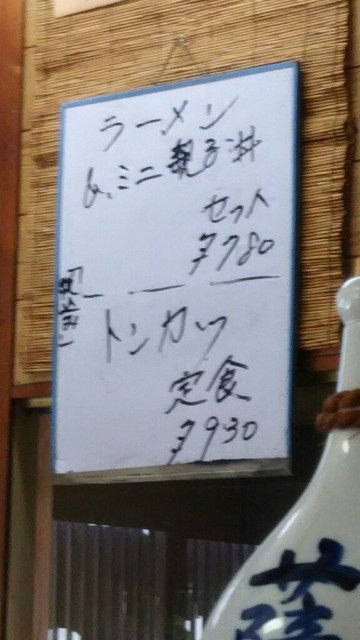 ラーメン
&ミニ親子丼
セット
¥780
トンカツ
定食
¥930